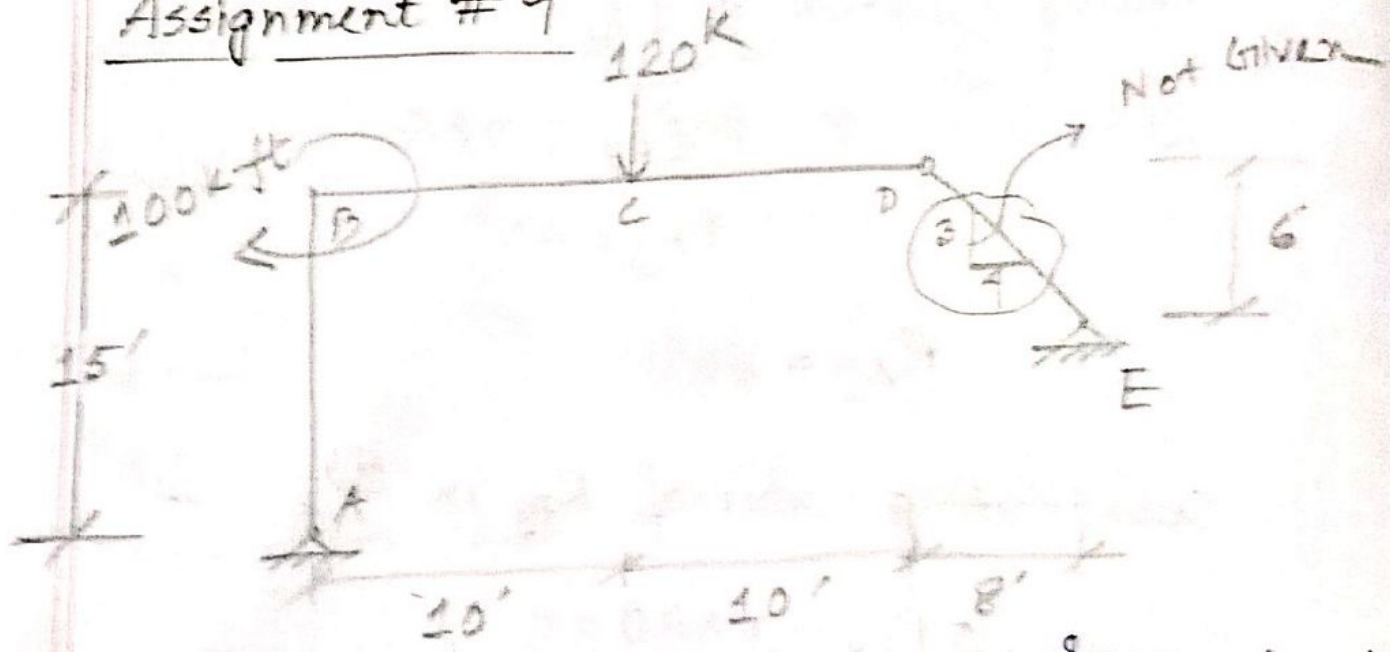 Assignment # 9
120K
Not Given
100K ft
B
C
D
3
6
15'
E
A
10'
10'
8'